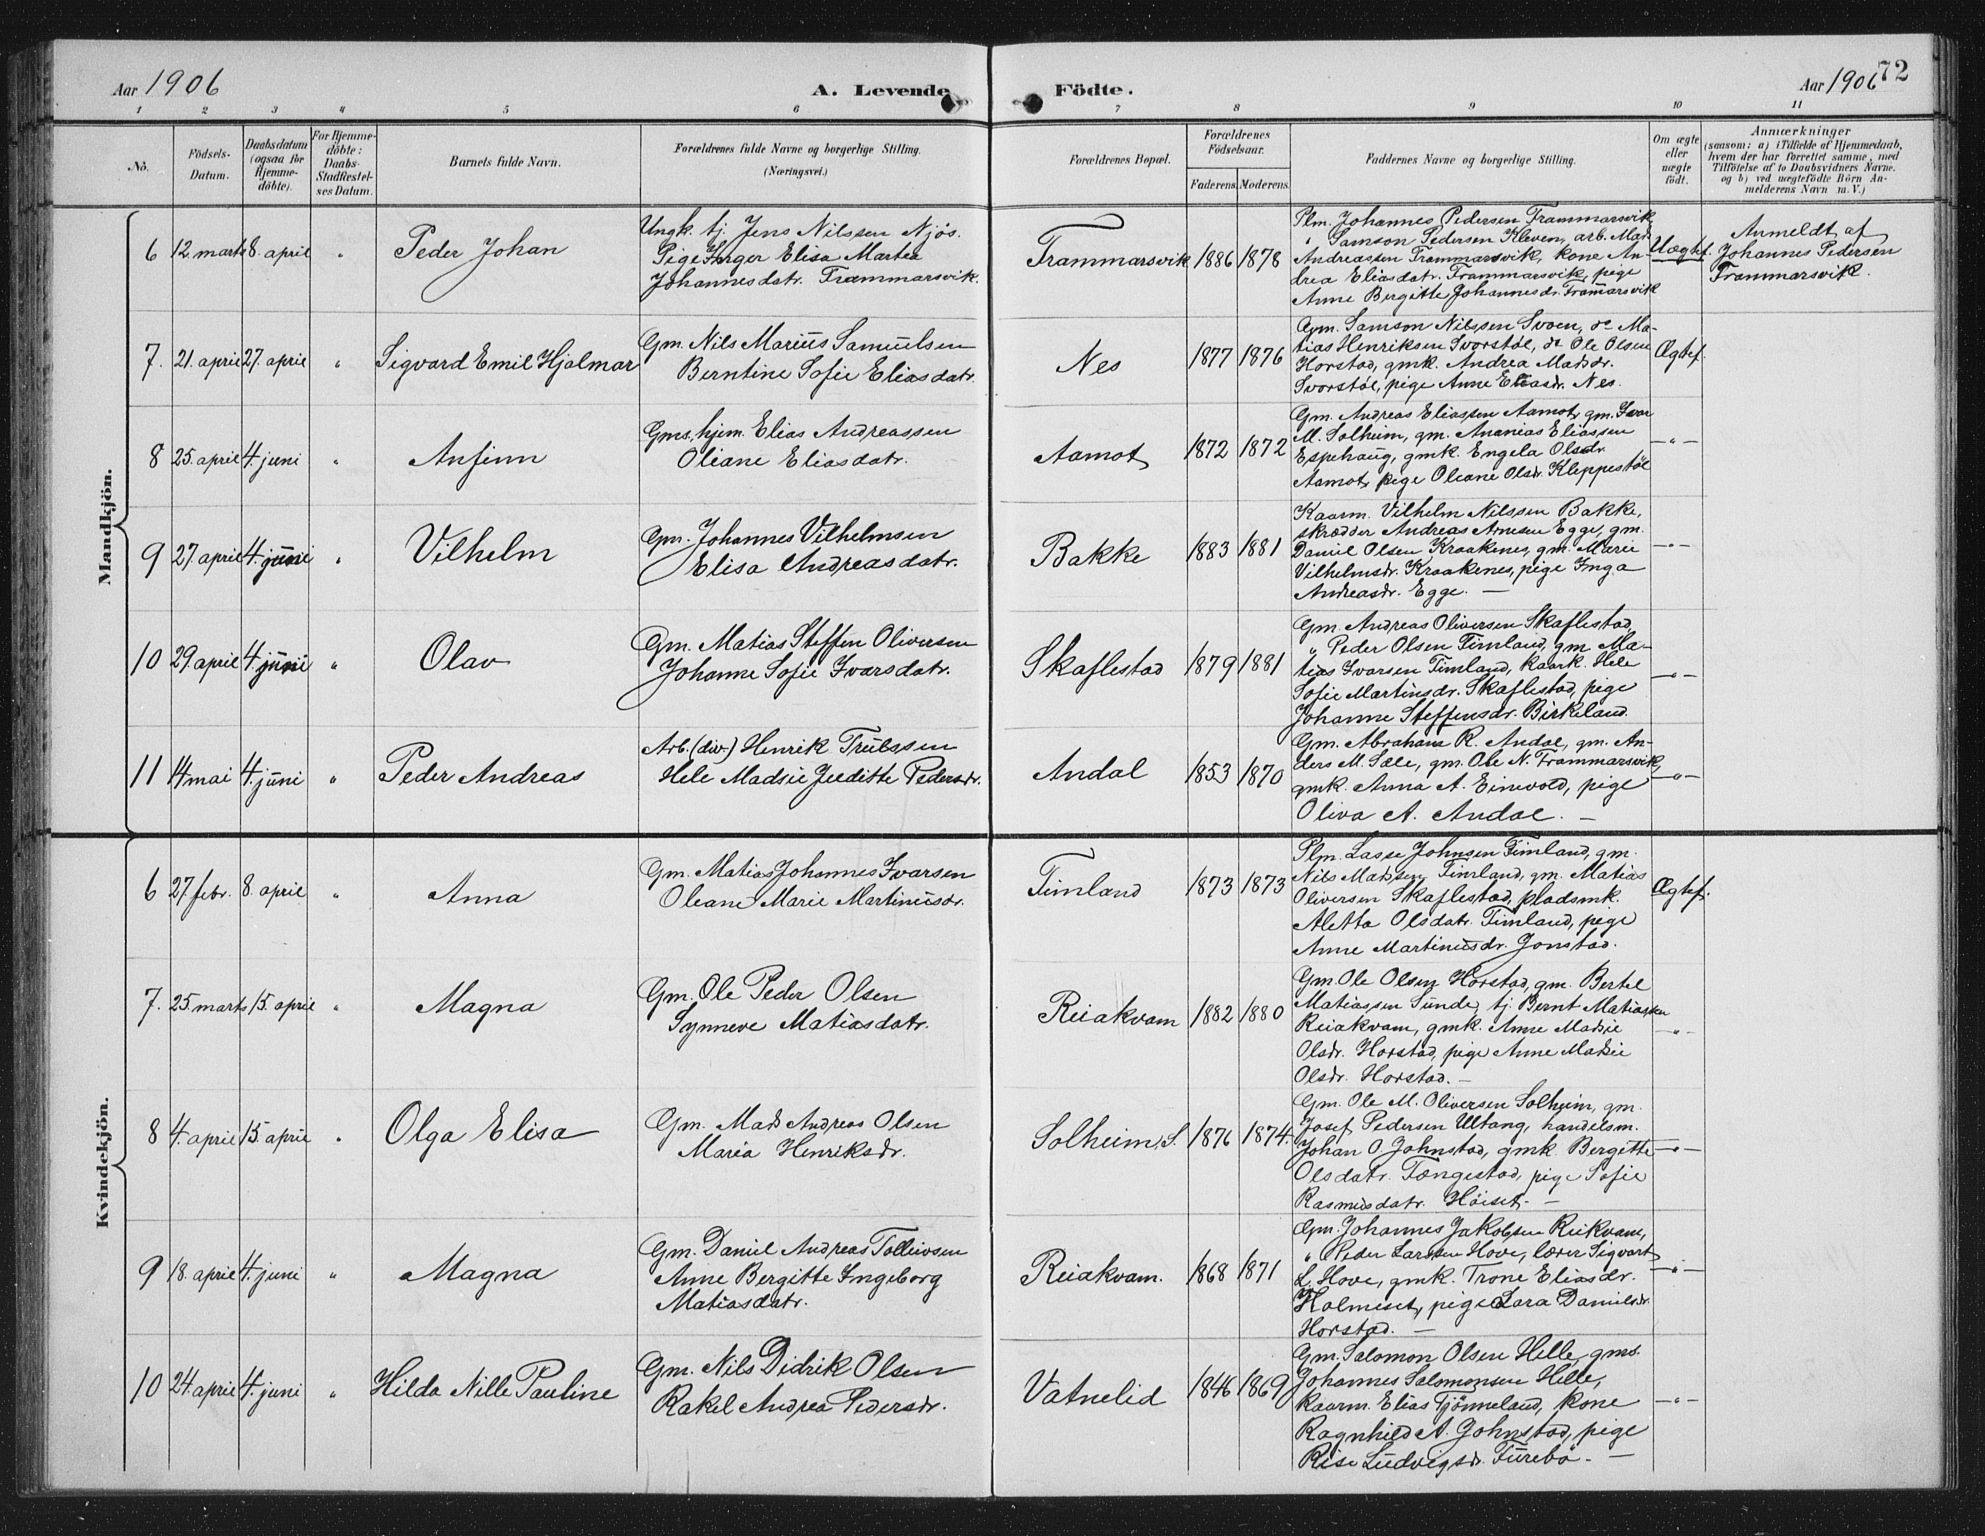 Aar 1906 A. Levende Födte. Aar 1906 72
1 2 3 4 5 6 7 8 9 10 11
No.
Födsels-Datum.
Daabsdatum (ogsaa for Hjemmedöbte).
For Hjemmedöbte: Daabs-Stadfæstelses Datum.
Barnets fulde Navn.
Forældrenes fulde Navne og borgerlige Stilling.
(Næringsvei.)
Forældrenes Bopæl.
Forældrenes Födselsaar.
Faderens. Moderens.
Faddernes Navne og borgerlige Stilling.
Om ægte eller uægte födt.
Anmærkninger
(saasom: a) i Tilfælde af Hjemmedaab,
hvem der har forrettet samme, med
Tilföielse af to Daabsvidners Navne.
og b) ved uægtefödte Börn An-
melderens Navn m. V.)
Mandkjön.
6 12 marts 8. april " Peder Johan
Ungk. tj. Jens Nilssen Njøs.
Pige Inger Elisa Martea
Johannesdatr. Frammarsvik.
Frammarsvik 1886 1878
Plm. Johannes Pedersen Frammarsvik
" Samson Pedersen Kleven, arb. Mads
Andreassen Frammarsvik, kone An-
drea Eliasdatr. Frammarsvik, pige
Anne Bergitte Johannesdr. Framarsvik
Uægtef.
Anmeldt af
Johannes Pedersen
Frammarsvik.
7. 21. april 27. april " Sigvard Emil Hjalmar
Gm. Nils Marius Samuelsen
Berntine Sofie Eliasdatr.
Nes 1877 1876
Gm. Samson Nilssen Svoen, do Ma-
tias Henriksen Svorstøl, do Ole Olsen
Horstad, gmk. Andrea Madsdr.
Svorstøl, pige Anne Eliasdr. Nes.
Ægtef.
8 25. april 4. juni " Anfinn
Gms. hjem. Elias Andreassen
Oliane Eliasdatr.
Aamot 1872 1872
Gm. Andreas Eliassen Aamot, gm. Ivar
M. Solheim, gm. Ananias Eliassen
Espehaug, gmk. Engela Olsdr.
Aamot, pige Oleane Olsdr. Kleppestøl
- " -
9 27. april 4. juni " Vilhelm
Gm. Johannes Vilhelmsen
Elisa Andreasdatr.
Bakke 1883 1881
Kaarm. Vilhelm Nilssen Bakke,
skrædder Andreas Arnesen Egge, gm.
Daniel Olsen Kraakenes, gm. Marie
Vilhelmsdr. Kraakenes, pige Inga
Andreasdr. Egge. —
- " -
10 29. april 4. juni " Olav
Gm. Matias Steffen Oliversen
Johanne Sofie Ivarsdatr.
Skaflestad 1879 1881
Gm. Andreas Oliversen Skaflestad,
" Peder Olsen Timland, gm Ma-
tias Ivarsen Timland, kaark. Hele
Sofie Martinsdr. Skaflestad, pige
Johanne Steffensdr. Birkeland.
- " -
11 14 mai 4. juni " Peder Andreas
Arb. (div.) Henrik Trulssen
Hele Madsie Juditte Pedersdr.
Andal 1853 1870
Gm. Abraham R. Andal, gm. An-
ders M. Sæle, gm. Ole N. Frammarsvik,
gmk. Anna A. Einevold, pige
Oliva A. Andal. —
- " -
Kvindekjön.
6 27. febr. 8. april " Anna
Gm. Matias Johannes Ivarsen
Oleane Marie Martinusdr.
Timland 1873 1873
Plm. Lasse Johnsen Timland, gm.
Nils Madssen Timland, gm. Matias
Oliversen Skaflestad, pladsmk.
Aletta Olsdatr. Timland, pige
Anne Martinusdr. Jonstad.
Ægtef.
7. 25. marts 15. april " Magna
Gm. Ole Peder Olsen
Synneve Matiasdatr.
Reiakvam 1882 1880
Gm. Ole Olsen Horstad, gm. Bertel
Matiassen Sunde, tj. Bernt Matiassen
Reiakvam, gmk. Anne Madsie
Olsdr. Horstad, pige Anne Madsie
Olsdr. Horstad. —
- " -
8 4. april 15. april " Olga Elisa
Gm. Mads Andreas Olsen
Maria Henriksdr.
Solheim, S. 1876 1874.
Gm. Ole M. Oliversen Solheim, gm.
Josef Pedersen Ultang, handelsm.
Johan O. Johnstad, gmk. Bergitte
Olsdatr. Tængestad, pige Sofie
Rasmusdatr. Höiset. —
- " -
9 18. april 4. juni " Magna
Gm. Daniel Andreas Tolleivsen
Anne Bergitte Ingeborg
Matiasdatr.
Reiakvam. 1868 1871
Gm. Johannes Jakobsen Reikvam,
" Peder Larssen Hove, lærer Sigvart
L. Hove, gmk. Trone Eliasdr.
Holmeset, pige Lara Danielsdr.
Horstad. —
- " -
10 24. april 4. juni " Hilda Nille Pauline
Gm. Nils Didrik Olsen
Rakel Andrea Pedersdr.
Vatnelid 1846 1869
Gm. Salomon Olsen Helle, gms.
Johannes Salomonsen Helle,
kaarm. Elias Tjønneland, kone
Ragnhild A. Johnstad, pige
Rise Ludvigsdr. Furebø. —
- " -